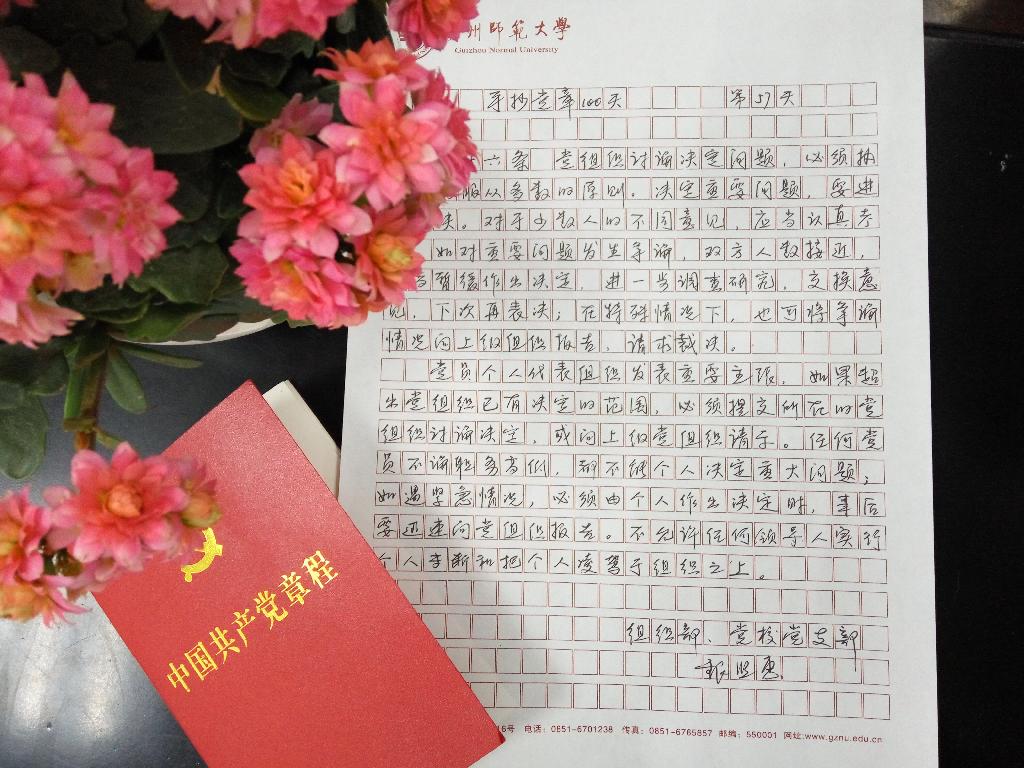 州師範大學
Guizhou Normal University
手抄党章100天 第57天
六条 党组织讨论决定问题，必须执
服从多数的原则。决定重要问题，要进
决。对于少数人的不同意见，应当认真考
如对重要问题发生争论，双方人数接近，
暂缓作出决定，进一步调查研究，交换意
见，下次再表决；在特殊情况下，也可将争论
情况向上级组织报告，请求裁决。
党员个人代表组织发表重要主张，如果超
出党组织已有决定的范围，必须提交所在的党
组织讨论决定，或向上级党组织请示。任何党
员不论职务高低，都不能个人决定重大问题；
如遇紧急情况，必须由个人作出决定时，事后
要迅速向党组织报告。不允许任何领导人实行
个人专断和把个人凌驾于组织之上。
组织部、党校党支部
中国共产党章程
6号 电话：0851-6701238 传真：0851-6765857 邮编：550001 网址:www.gznu.edu.cn